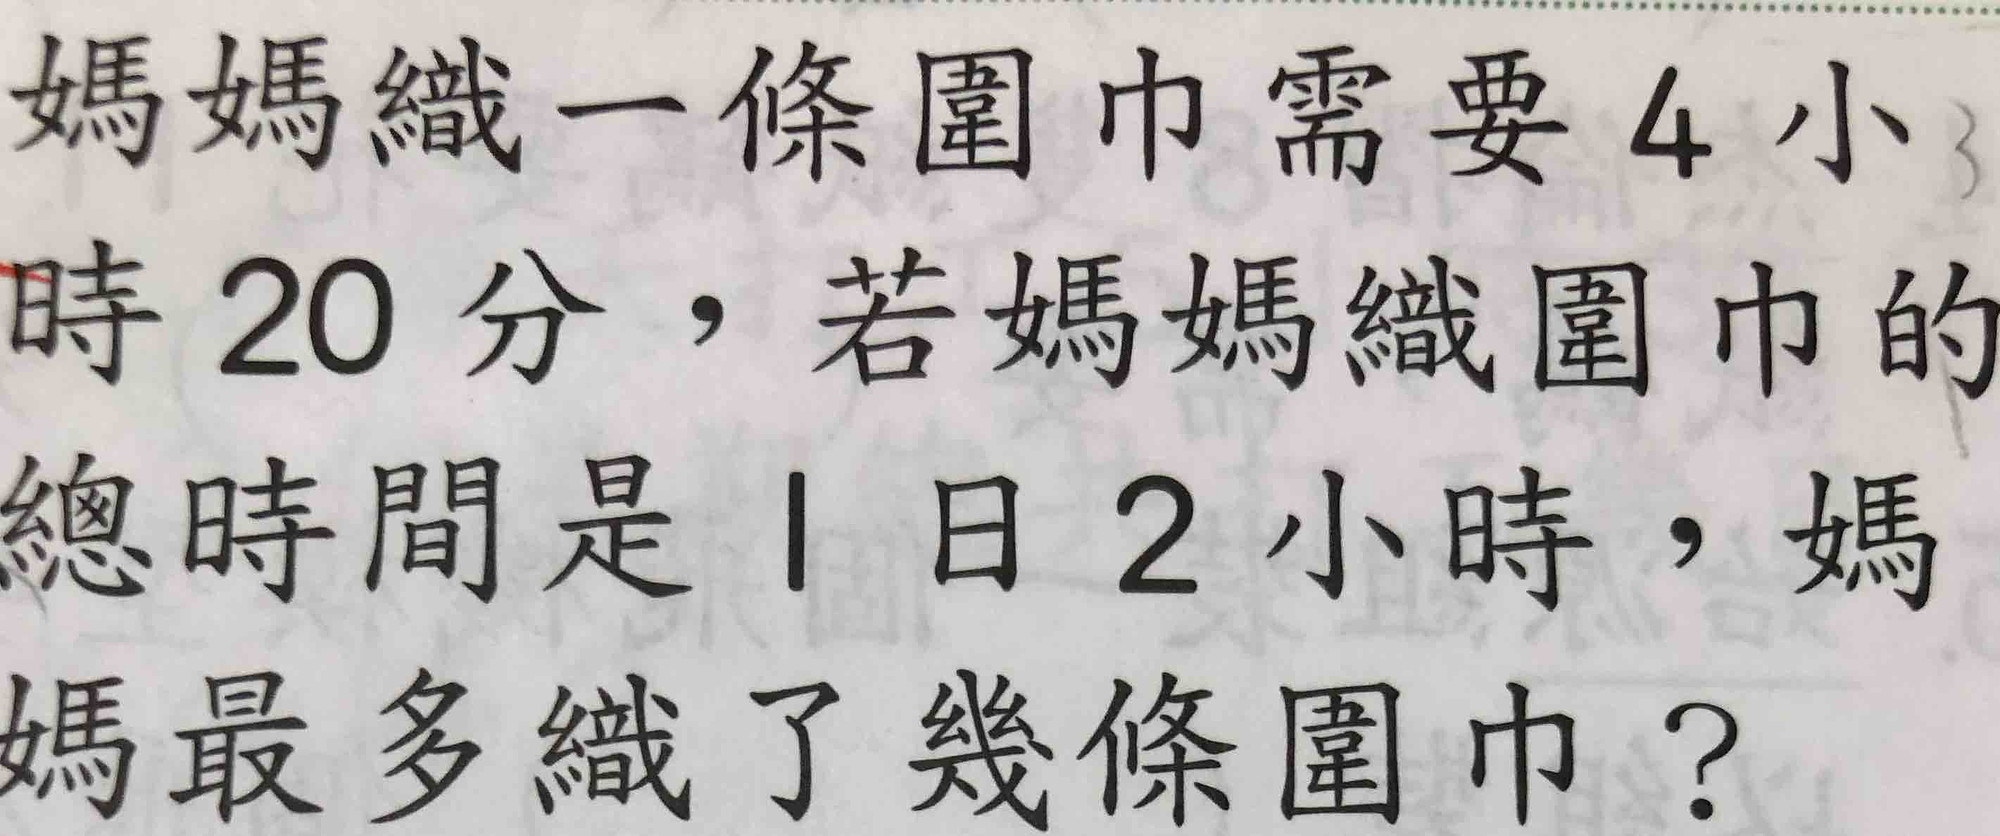 媽媽織一條圍巾需要4小
時20分，若媽媽織圍巾的
總時間是1日2小時，媽
媽最多織了幾條圍巾？